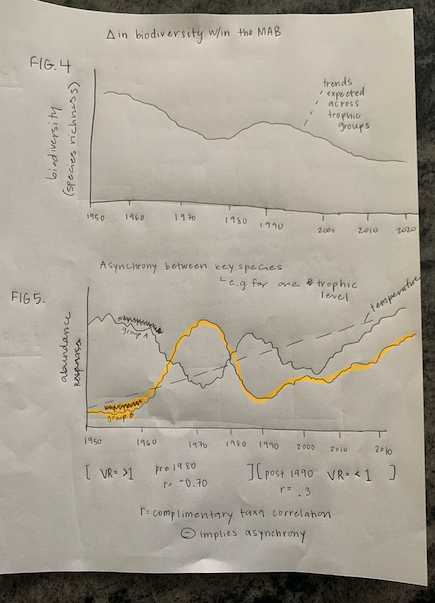 Δ in biodiversity w/in the MAB
FIG. 4
biodiversity
(species richness)
trends
expected
across
trophic
groups
1950 1960 1970 1980 1990 2000 2010 2020
Asynchrony between key species
e.g for one trophic
level
FIG 5.
abundance
responses
group A
group B
temperature
1950 1960 1970 1980 1990 2000 2010 2010
[ VR= >1 pre 1980 ] [ post 1990 VR= <1 ]
r= -0.70 r= .3
r= complimentary taxa correlation
⊖ implies asynchrony